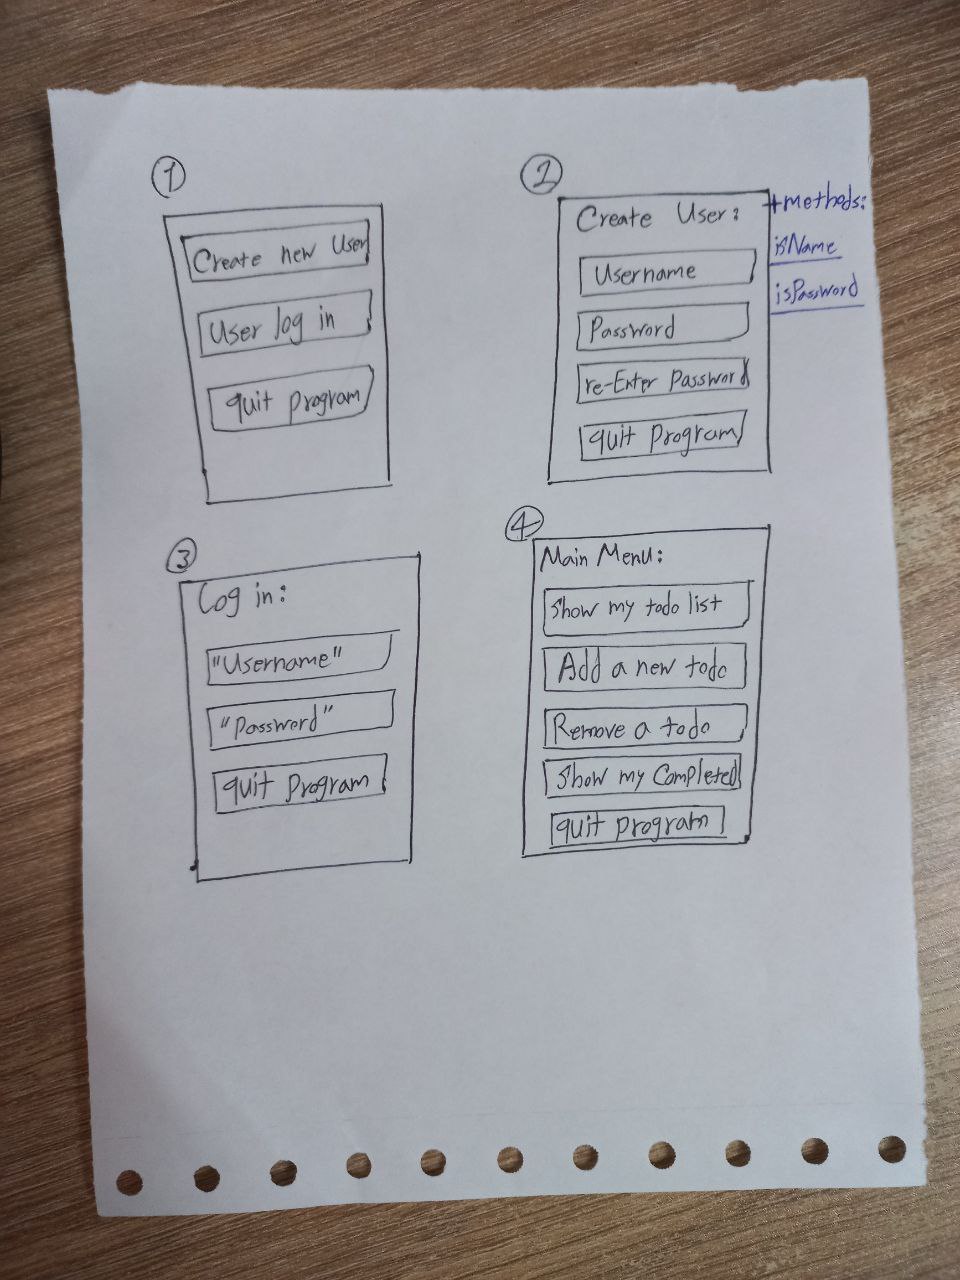 1
Create new User
User log in
quit program
2
Create User:
Username
Password
re-Enter Password
quit program
+methods:
isName
isPassword
3
Log in:
"Username"
"Password"
quit program
4
Main Menu:
show my todo list
Add a new todo
Remove a todo
show my Completed
quit program